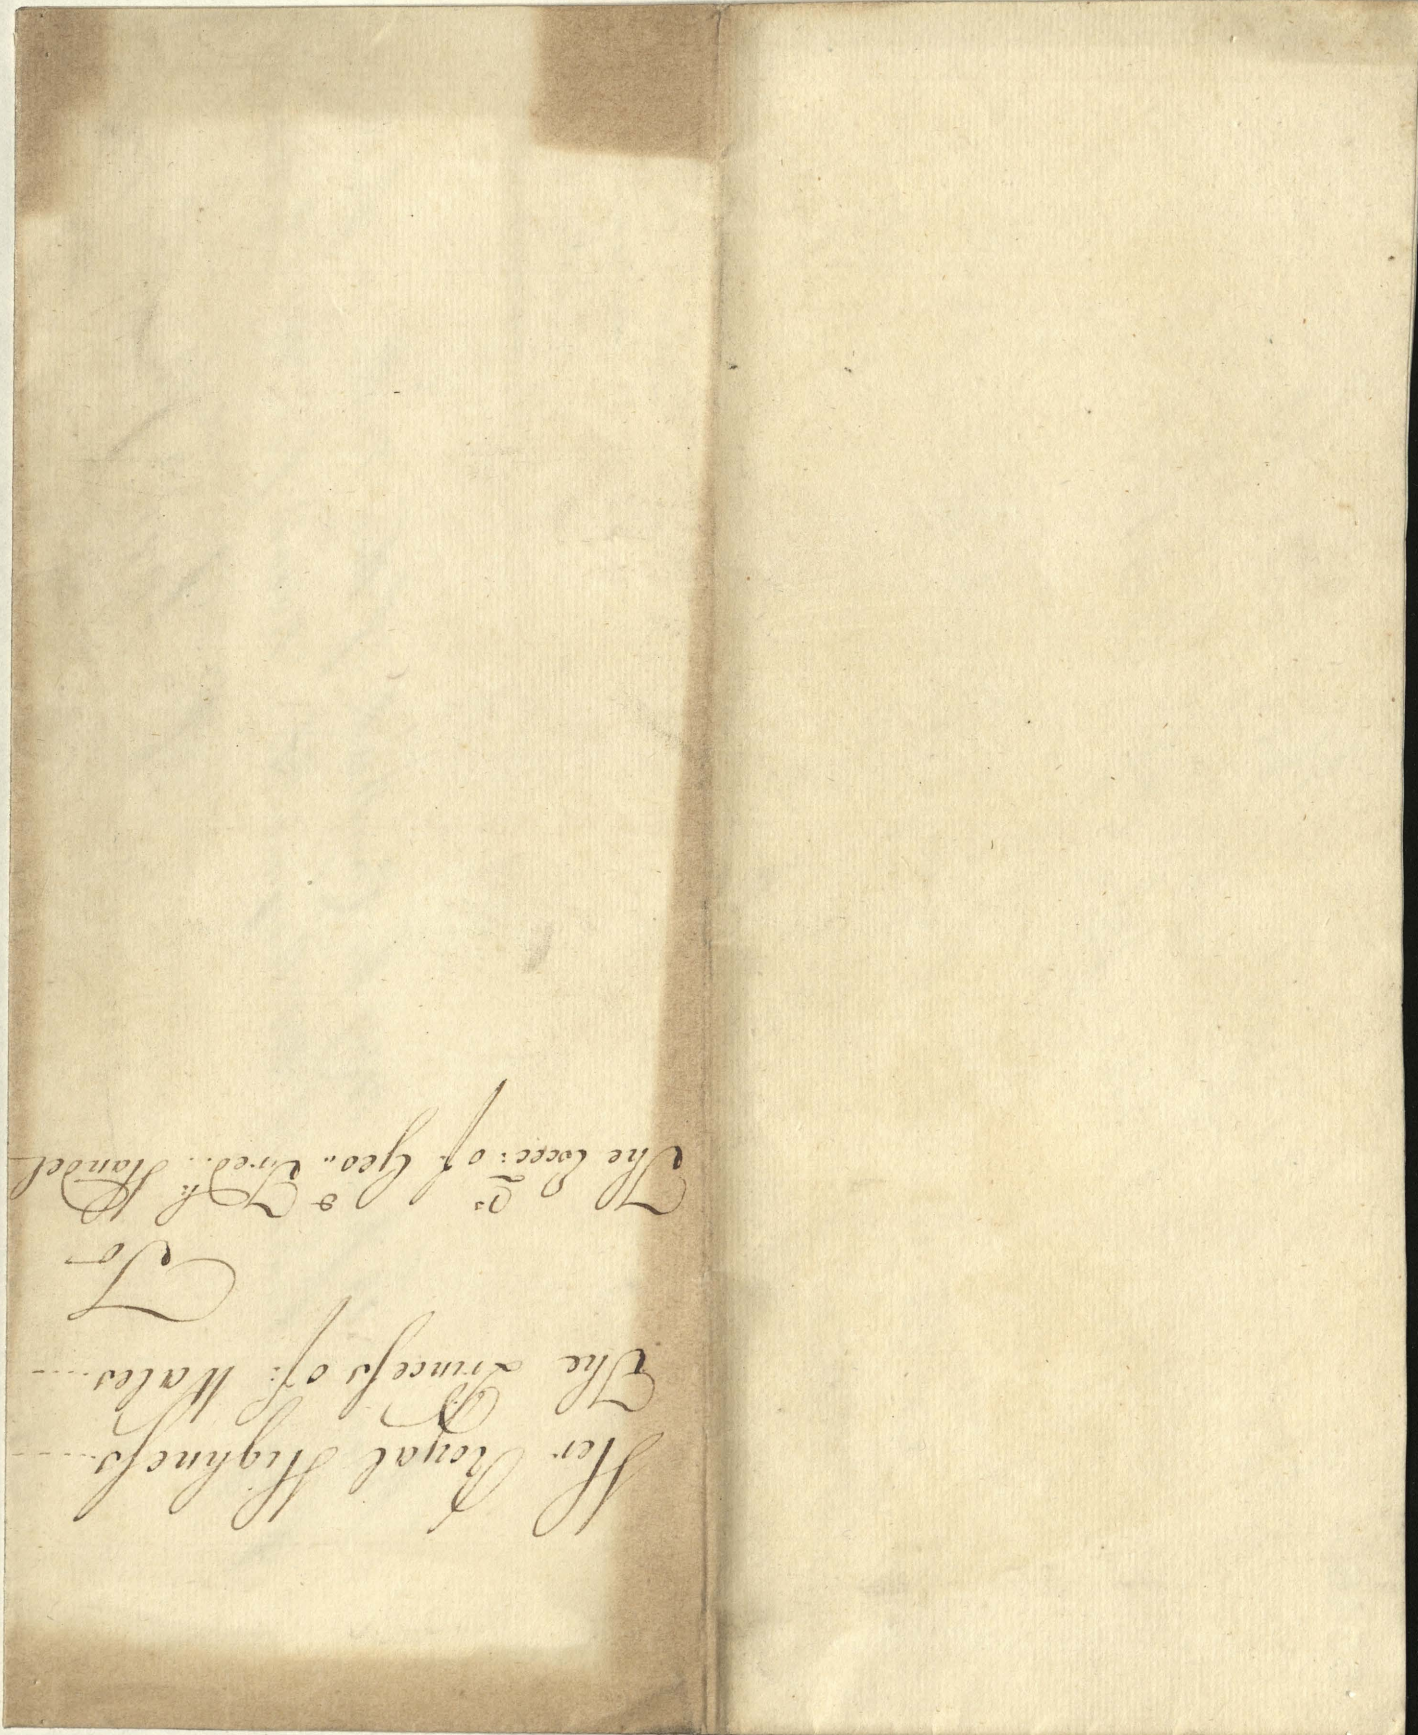 Her Royal Highneſs....
The Princeſs of: Wales....
To
The Exec:rs of Geo:e Fred:k Handel